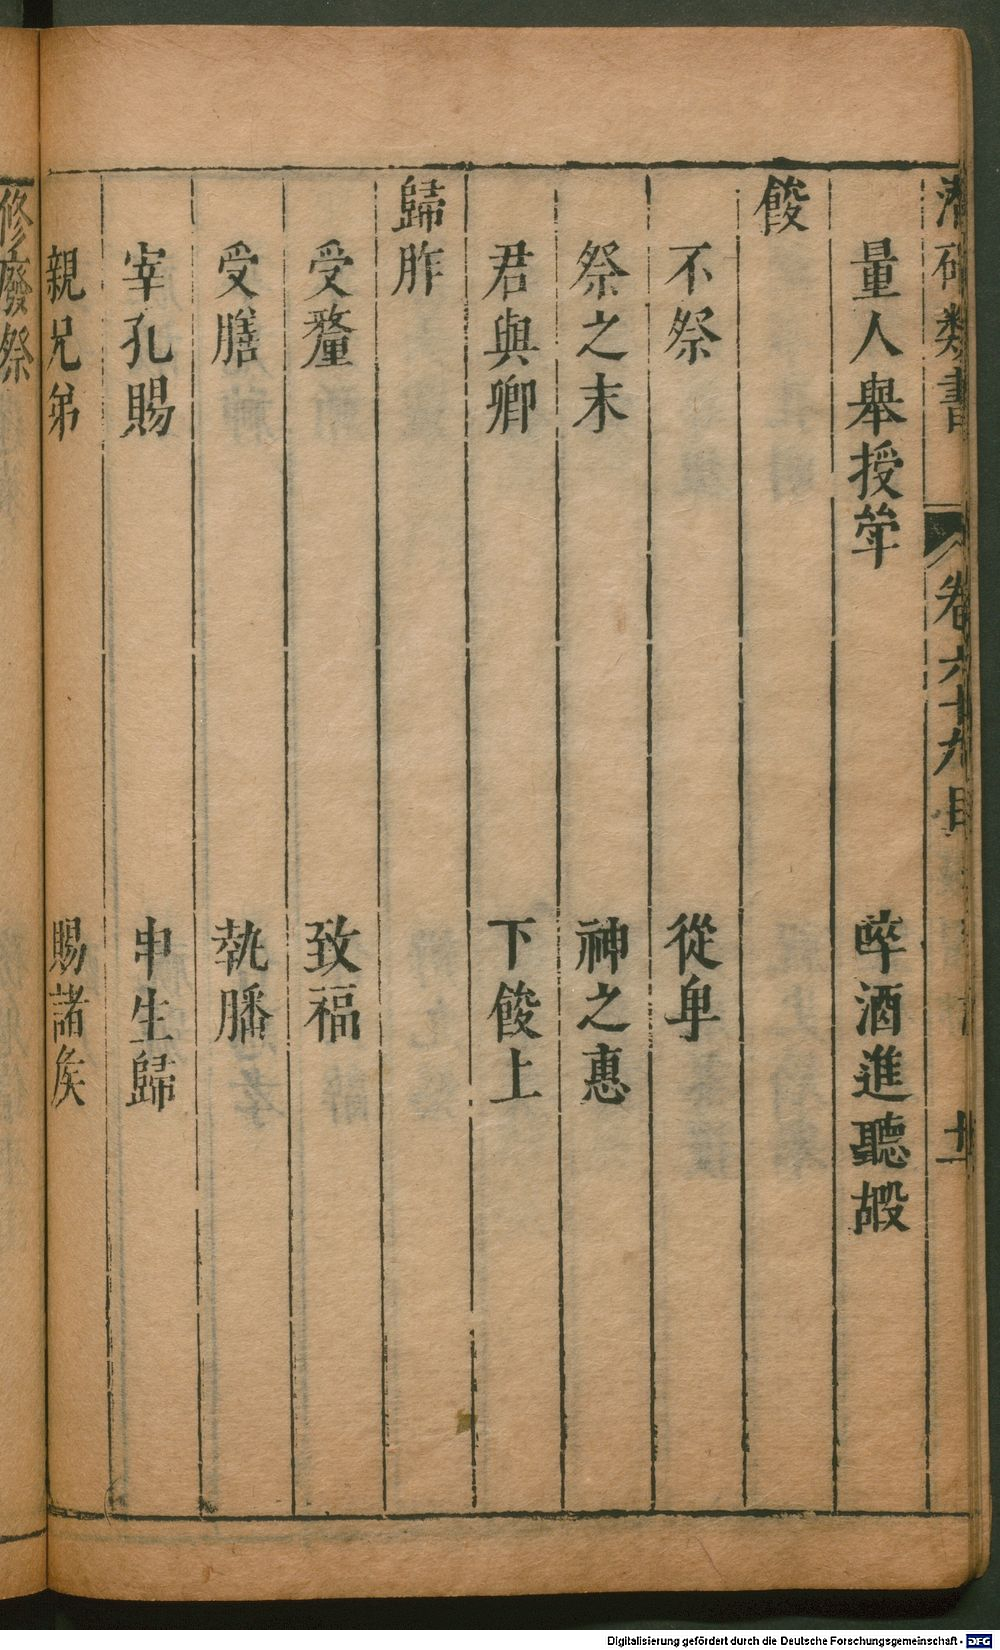 類書 卷六十九目 十二
量人舉授斝 啐酒進聽嘏
餕
不祭 從卑
祭之末 神之惠
君與卿 下餕上
歸胙
受釐 致福
受膳 執膰
宰孔賜 申生歸
親兄弟 賜諸矦
修廢祭
Digitalisierung gefördert durch die Deutsche Forschungsgemeinschaft - DFG